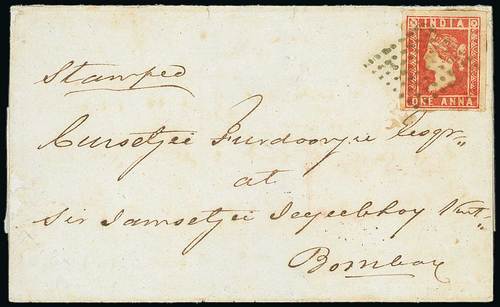 INDIA
ONE ANNA
Stamped
Cursetjee Furdoonjee Esqr
at
Sir Jamsetjee Jejeebhoy Knt
Bombay